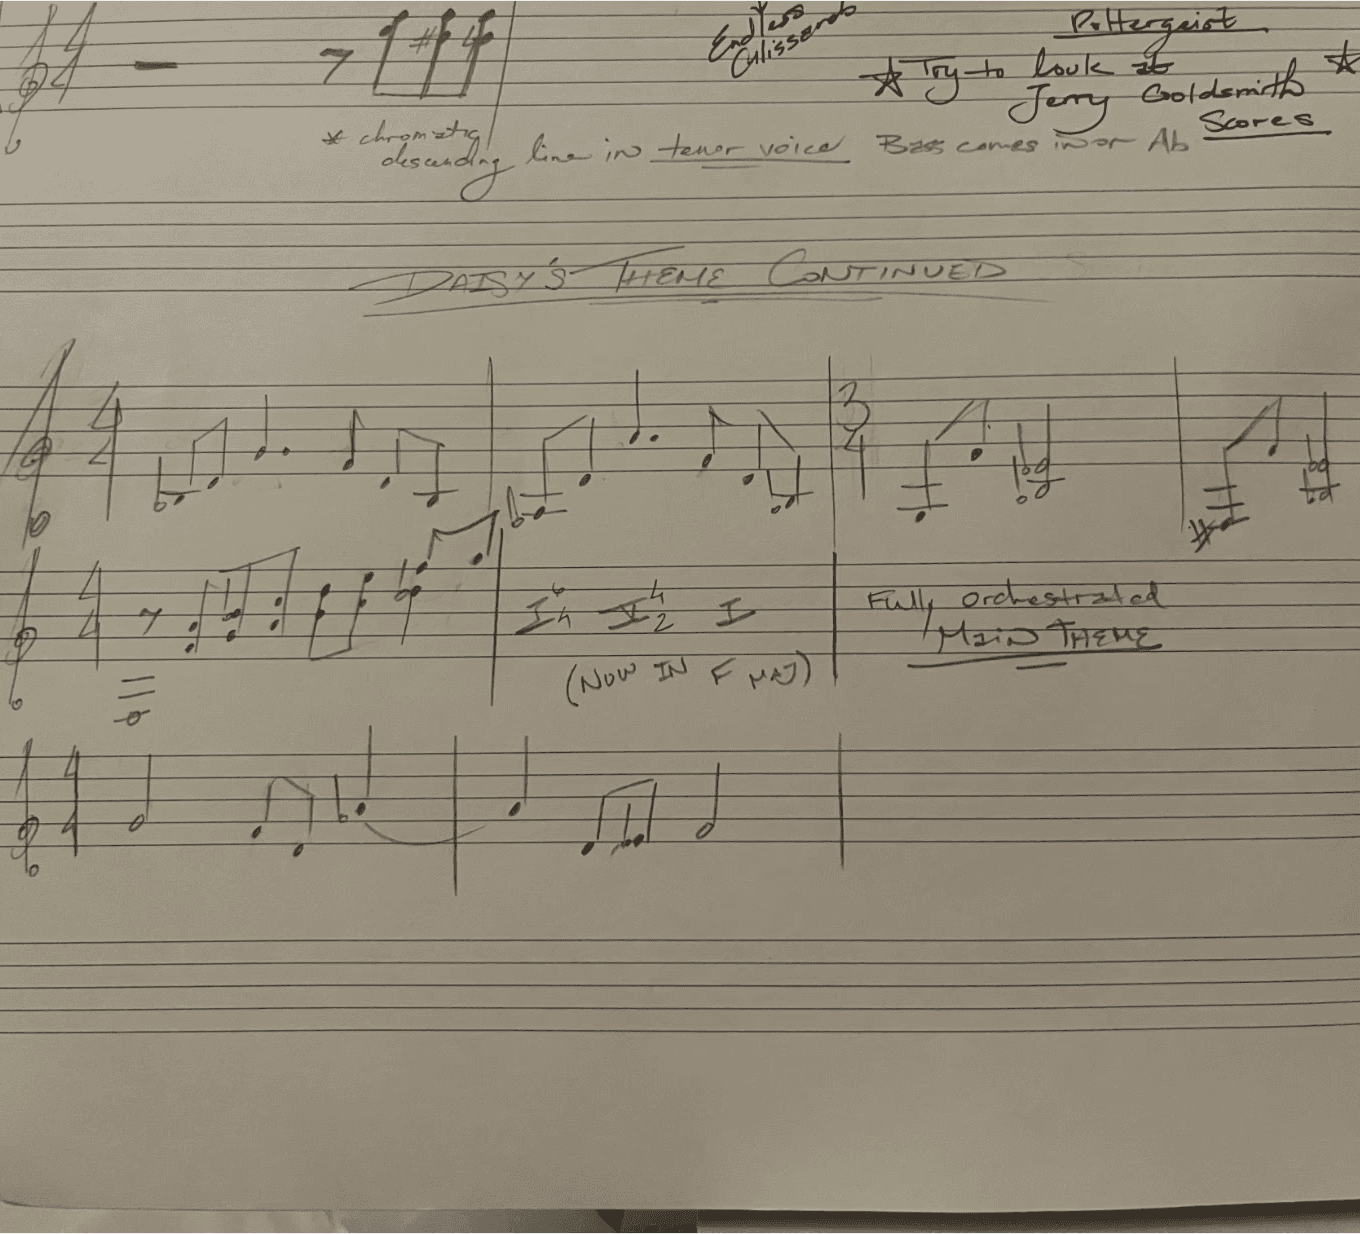 Endless
Glissando
Poltergeist
Try to look at
Jerry Goldsmith
Scores
* chromatic
descending line in tenor voice Bass comes in on Ab
DAISY'S THEME CONTINUED
4
4
3
4
4
4
I 6 4 V 4 2 I
Fully Orchestrated
MAIN THEME
(NOW IN F MAJ)
4
4